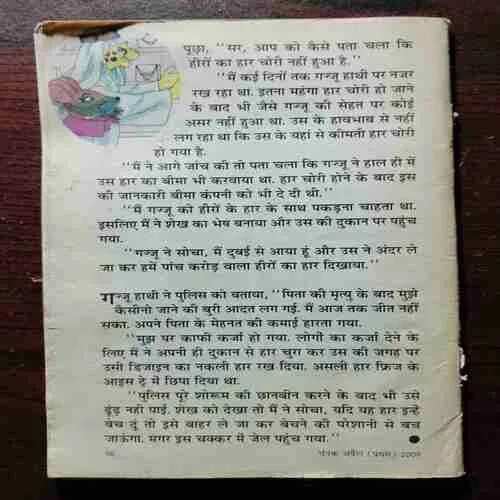 पूछा, ''सर, आप को कैसे पता चला कि
हीरों का हार चोरी नहीं हुआ है.''
''मैं कई दिनों तक गज्जू हाथी पर नजर
रख रहा था. इतना महंगा हार चोरी हो जाने
के बाद भी जैसे गज्जू की सेहत पर कोई
असर नहीं हुआ था. उस के हावभाव से नहीं
लग रहा था कि उस के यहां से कीमती हार चोरी
हो गया है.
''मैं ने आगे जांच की तो पता चला कि गज्जू ने हाल ही में
उस हार का बीमा भी करवाया था. हार चोरी होने के बाद इस
की जानकारी बीमा कंपनी को भी दे दी थी.''
''मैं गज्जू को हीरों के हार के साथ पकड़ना चाहता था.
इसलिए मैं ने शेख का भेष बनाया और उस की दुकान पर पहुंच
गया.
''गज्जू ने सोचा, मैं दुबई से आया हूं और उस ने अंदर ले
जा कर हमें पांच करोड़ वाला हीरों का हार दिखाया.''
गज्जू हाथी ने पुलिस को बताया, ''पिता की मृत्यु के बाद मुझे
कैसीनो जाने की बुरी आदत लग गई. मैं आज तक जीत नहीं
सका. अपने पिता के मेहनत की कमाई हारता गया.
''मुझ पर काफी कर्जा हो गया. लोगों का कर्जा देने के
लिए मैं ने अपनी ही दुकान से हार चुरा कर उस की जगह पर
उसी डिजाइन का नकली हार रख दिया. असली हार फ्रिज के
आइस ट्रे में छिपा दिया था.
''पुलिस पूरे शोरूम की छानबीन करने के बाद भी उसे
ढूंढ़ नहीं पाई. शेख को देखा तो मैं ने सोचा, यदि यह हार इन्हें
बेच दूं तो इसे बाहर ले जा कर बेचने की परेशानी से बच
जाऊंगा. मगर इस चक्कर में जेल पहुंच गया.''
चंपक अप्रैल (प्रथम)